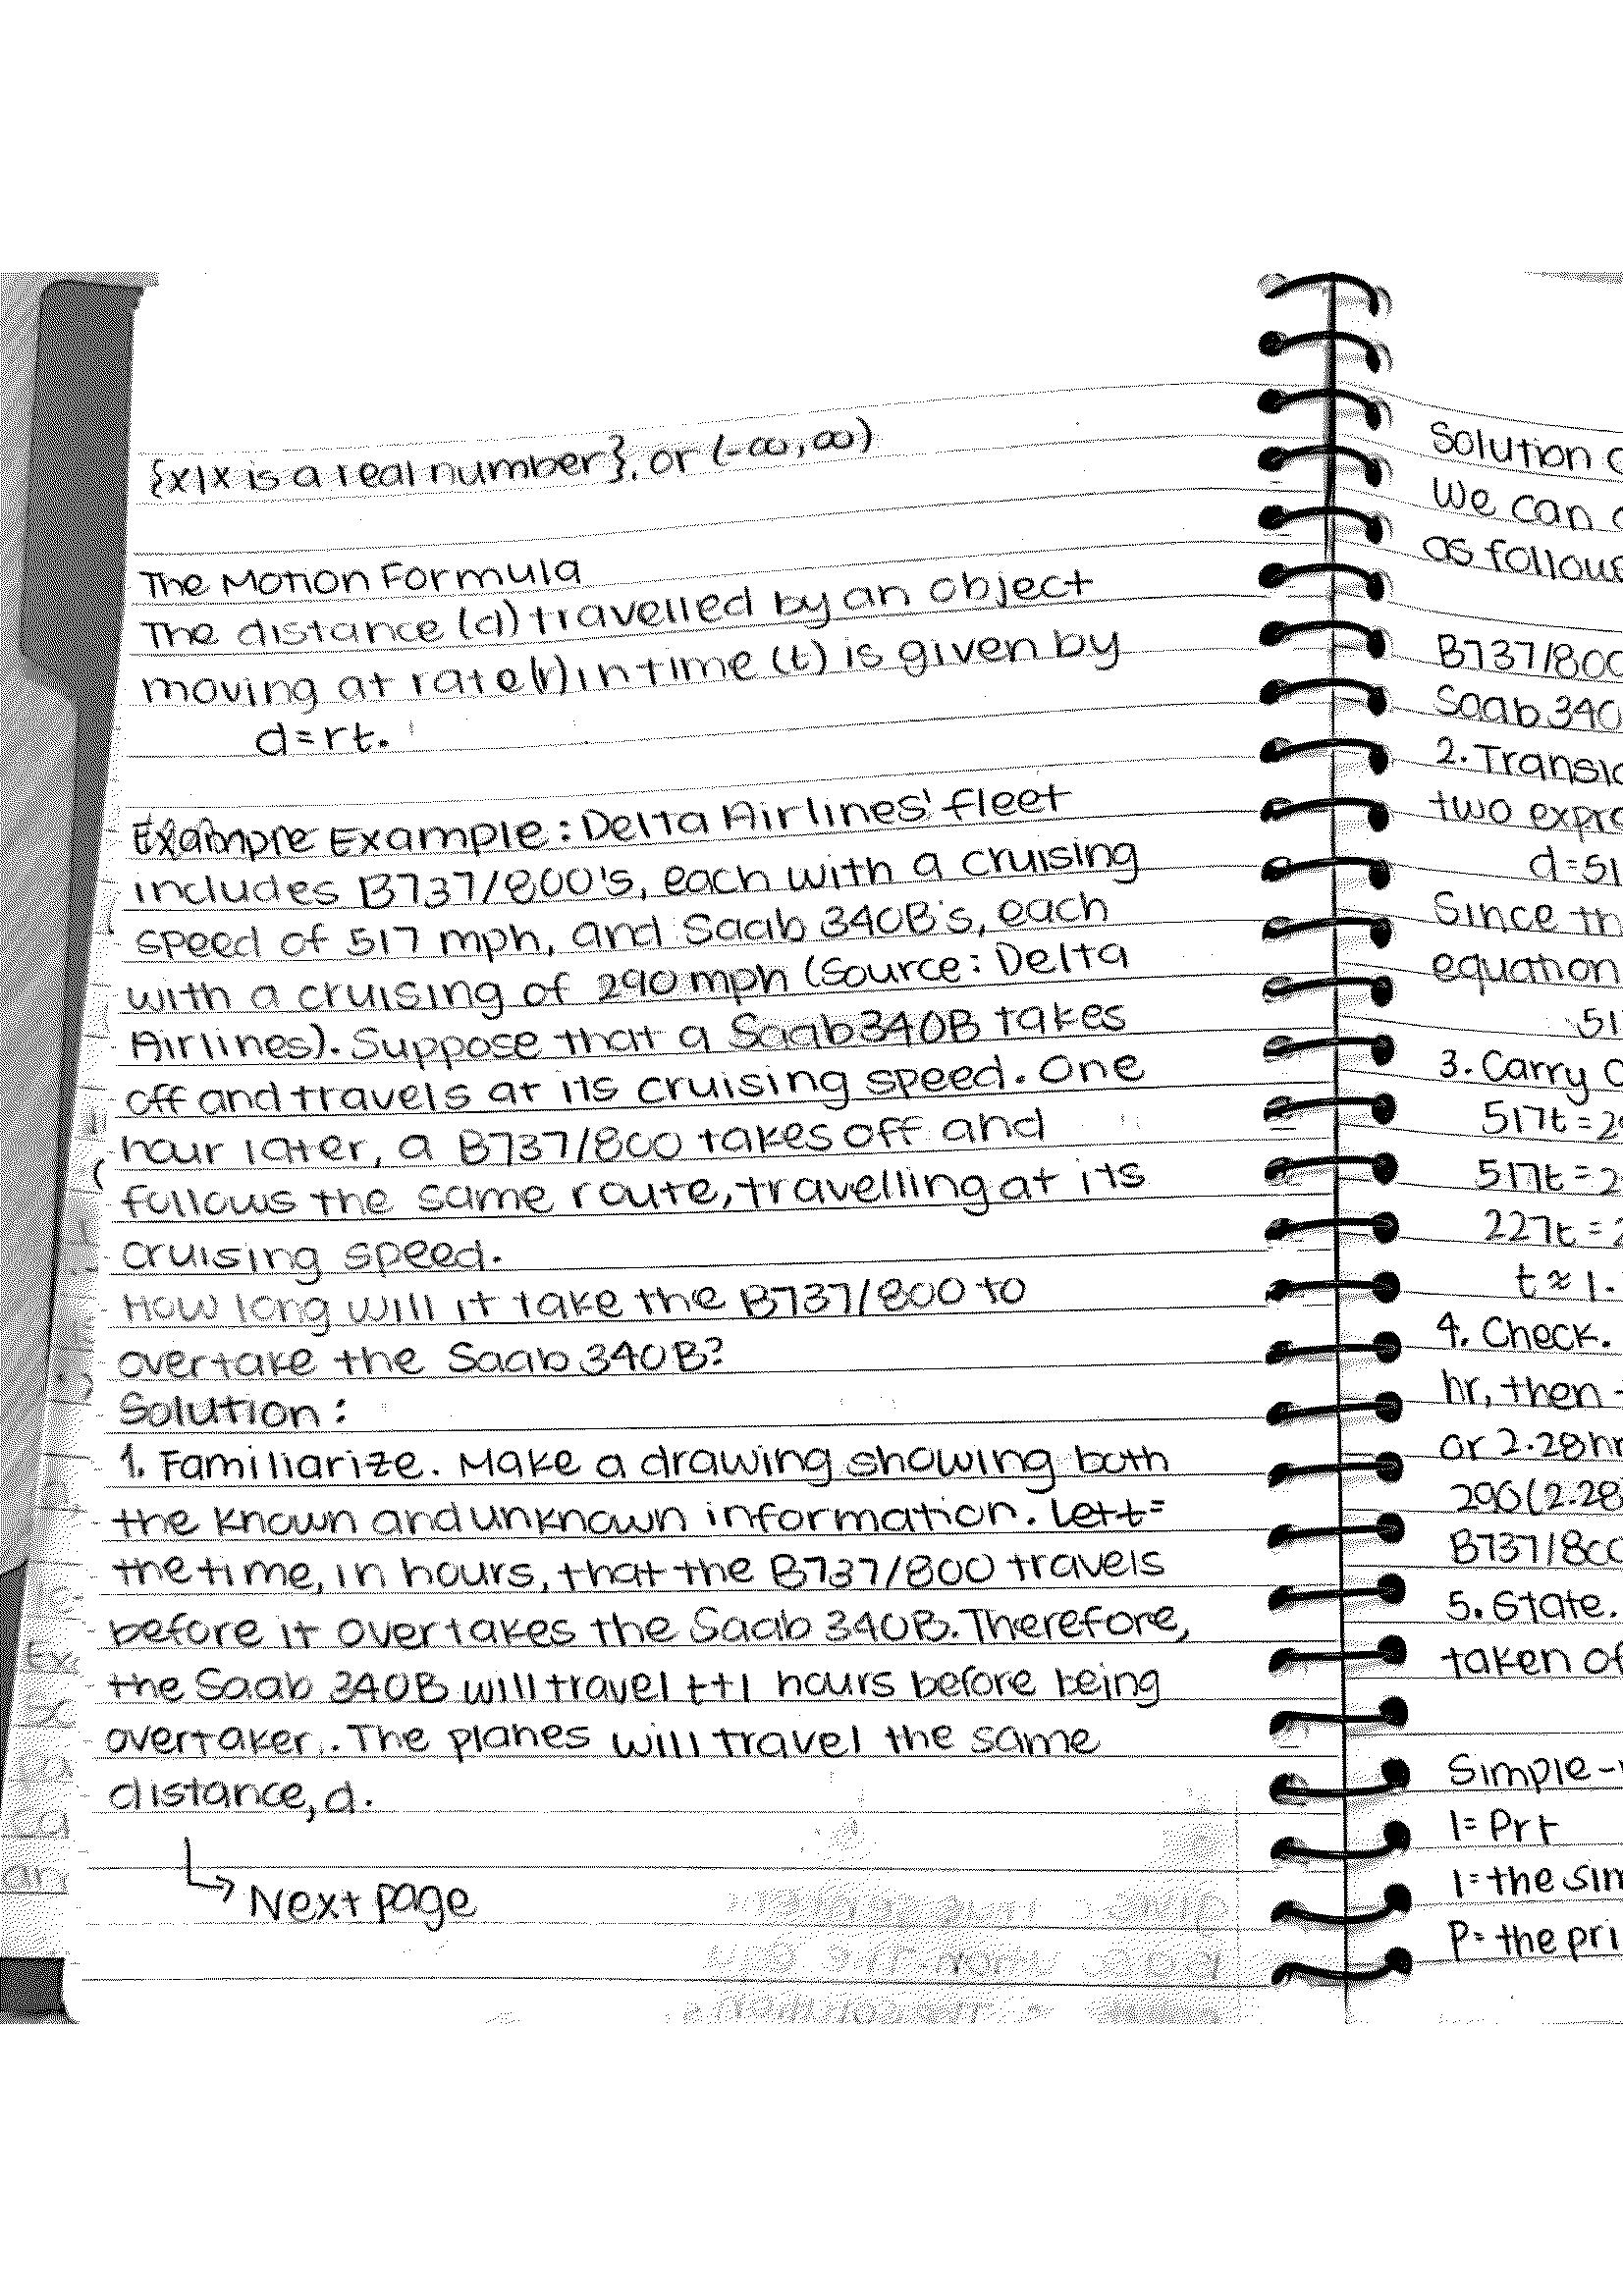 {x|x is a real number}, or (-∞, ∞)
The Motion Formula
The distance (d) travelled by an object
moving at rate (r) in time (t) is given by
d=rt.
Example Example: Delta Airlines' fleet
includes B737/800's, each with a cruising
speed of 517 mph, and Saab 340B's, each
with a cruising of 290 mph (Source: Delta
Airlines). Suppose that a Saab 340B takes
off and travels at its cruising speed. One
hour later, a B737/800 takes off and
follows the same route, travelling at its
cruising speed.
How long will it take the B737/800 to
overtake the Saab 340B?
Solution:
1. Familiarize. Make a drawing showing both
the known and unknown information. Let t=
the time, in hours, that the B737/800 travels
before it overtakes the Saab 340B. Therefore,
the Saab 340B will travel t+1 hours before being
overtaker. The planes will travel the same
distance, d.
Next page
Solution
We can
as follows
B737/800
Saab 340
2.
two
d=51
Since
equation
51
3. Carry
517t=2
517t=2
227t=
t≈1.
4. Check.
hr, then
or 2.28hr
290(2.28
B737/800
5. State.
taken of
Simple-
I=Prt
I=the sim
P=the pri